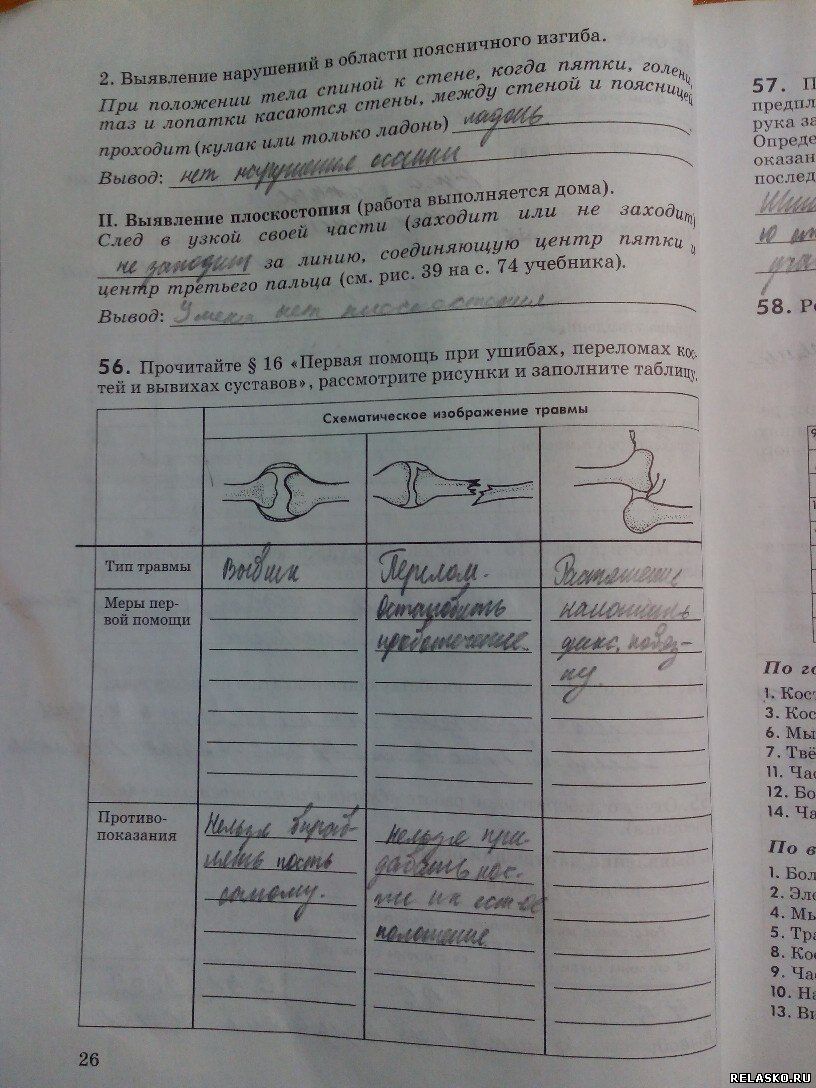 2. Выявление нарушений в области поясничного изгиба.
При положении тела спиной к стене, когда пятки, голени,
таз и лопатки касаются стены, между стеной и поясницей
проходит (кулак или только ладонь) ладонь
Вывод: нет нарушения осанки
II. Выявление плоскостопия (работа выполняется дома).
След в узкой своей части (заходит или не заходит)
не заходит за линию, соединяющую центр пятки и
центр третьего пальца (см. рис. 39 на с. 74 учебника).
Вывод: У меня нет плоскостопия
56. Прочитайте § 16 «Первая помощь при ушибах, переломах кос-
тей и вывихах суставов», рассмотрите рисунки и заполните таблицу.
Схематическое изображение травмы
Тип травмы Вывих Перелом. Растяжение
Меры пер-
вой помощи
Остановить
кровотечение.
наложить
фикс. повяз-
ку.
Противо-
показания
Нельзя вправ-
лять кость
самому.
нельзя при-
давать кос-
ти их ест-ое
положение
26
57. П
предпл
рука за
Опреде
оказан
послед
Шин
58. Р
По го
1. Кост
3. Кос
6. Мы
7. Твё
11. Час
12. Бо
14. Ча
По в
1. Бол
2. Эле
4. Мы
5. Тра
8. Кос
9. Час
10. На
13. Ви
RELASKO.RU